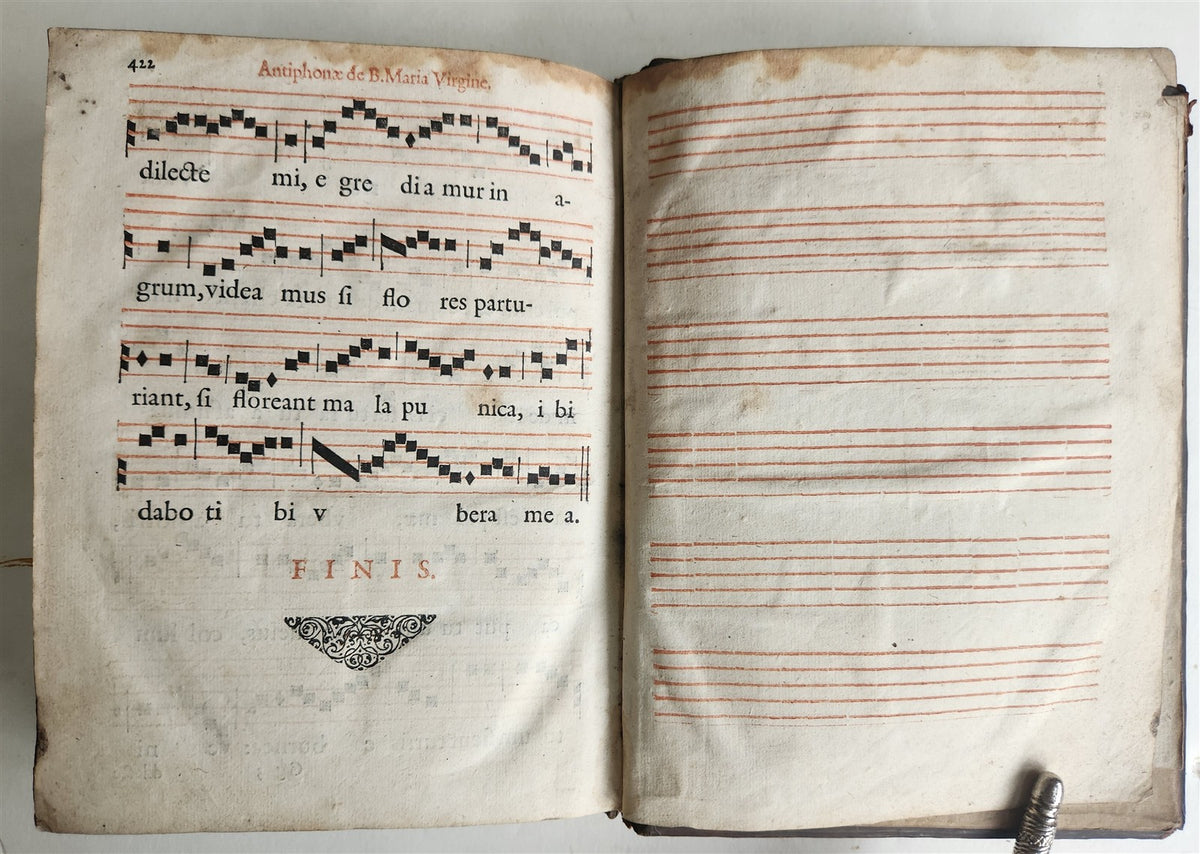 422
Antiphonæ de B. Maria Virgine.
dilecte mi, e gre dia mur in a-
grum, videa mus si flo res partu-
riant, si floreant ma la pu nica, i bi
dabo ti bi v bera me a.
FINIS.